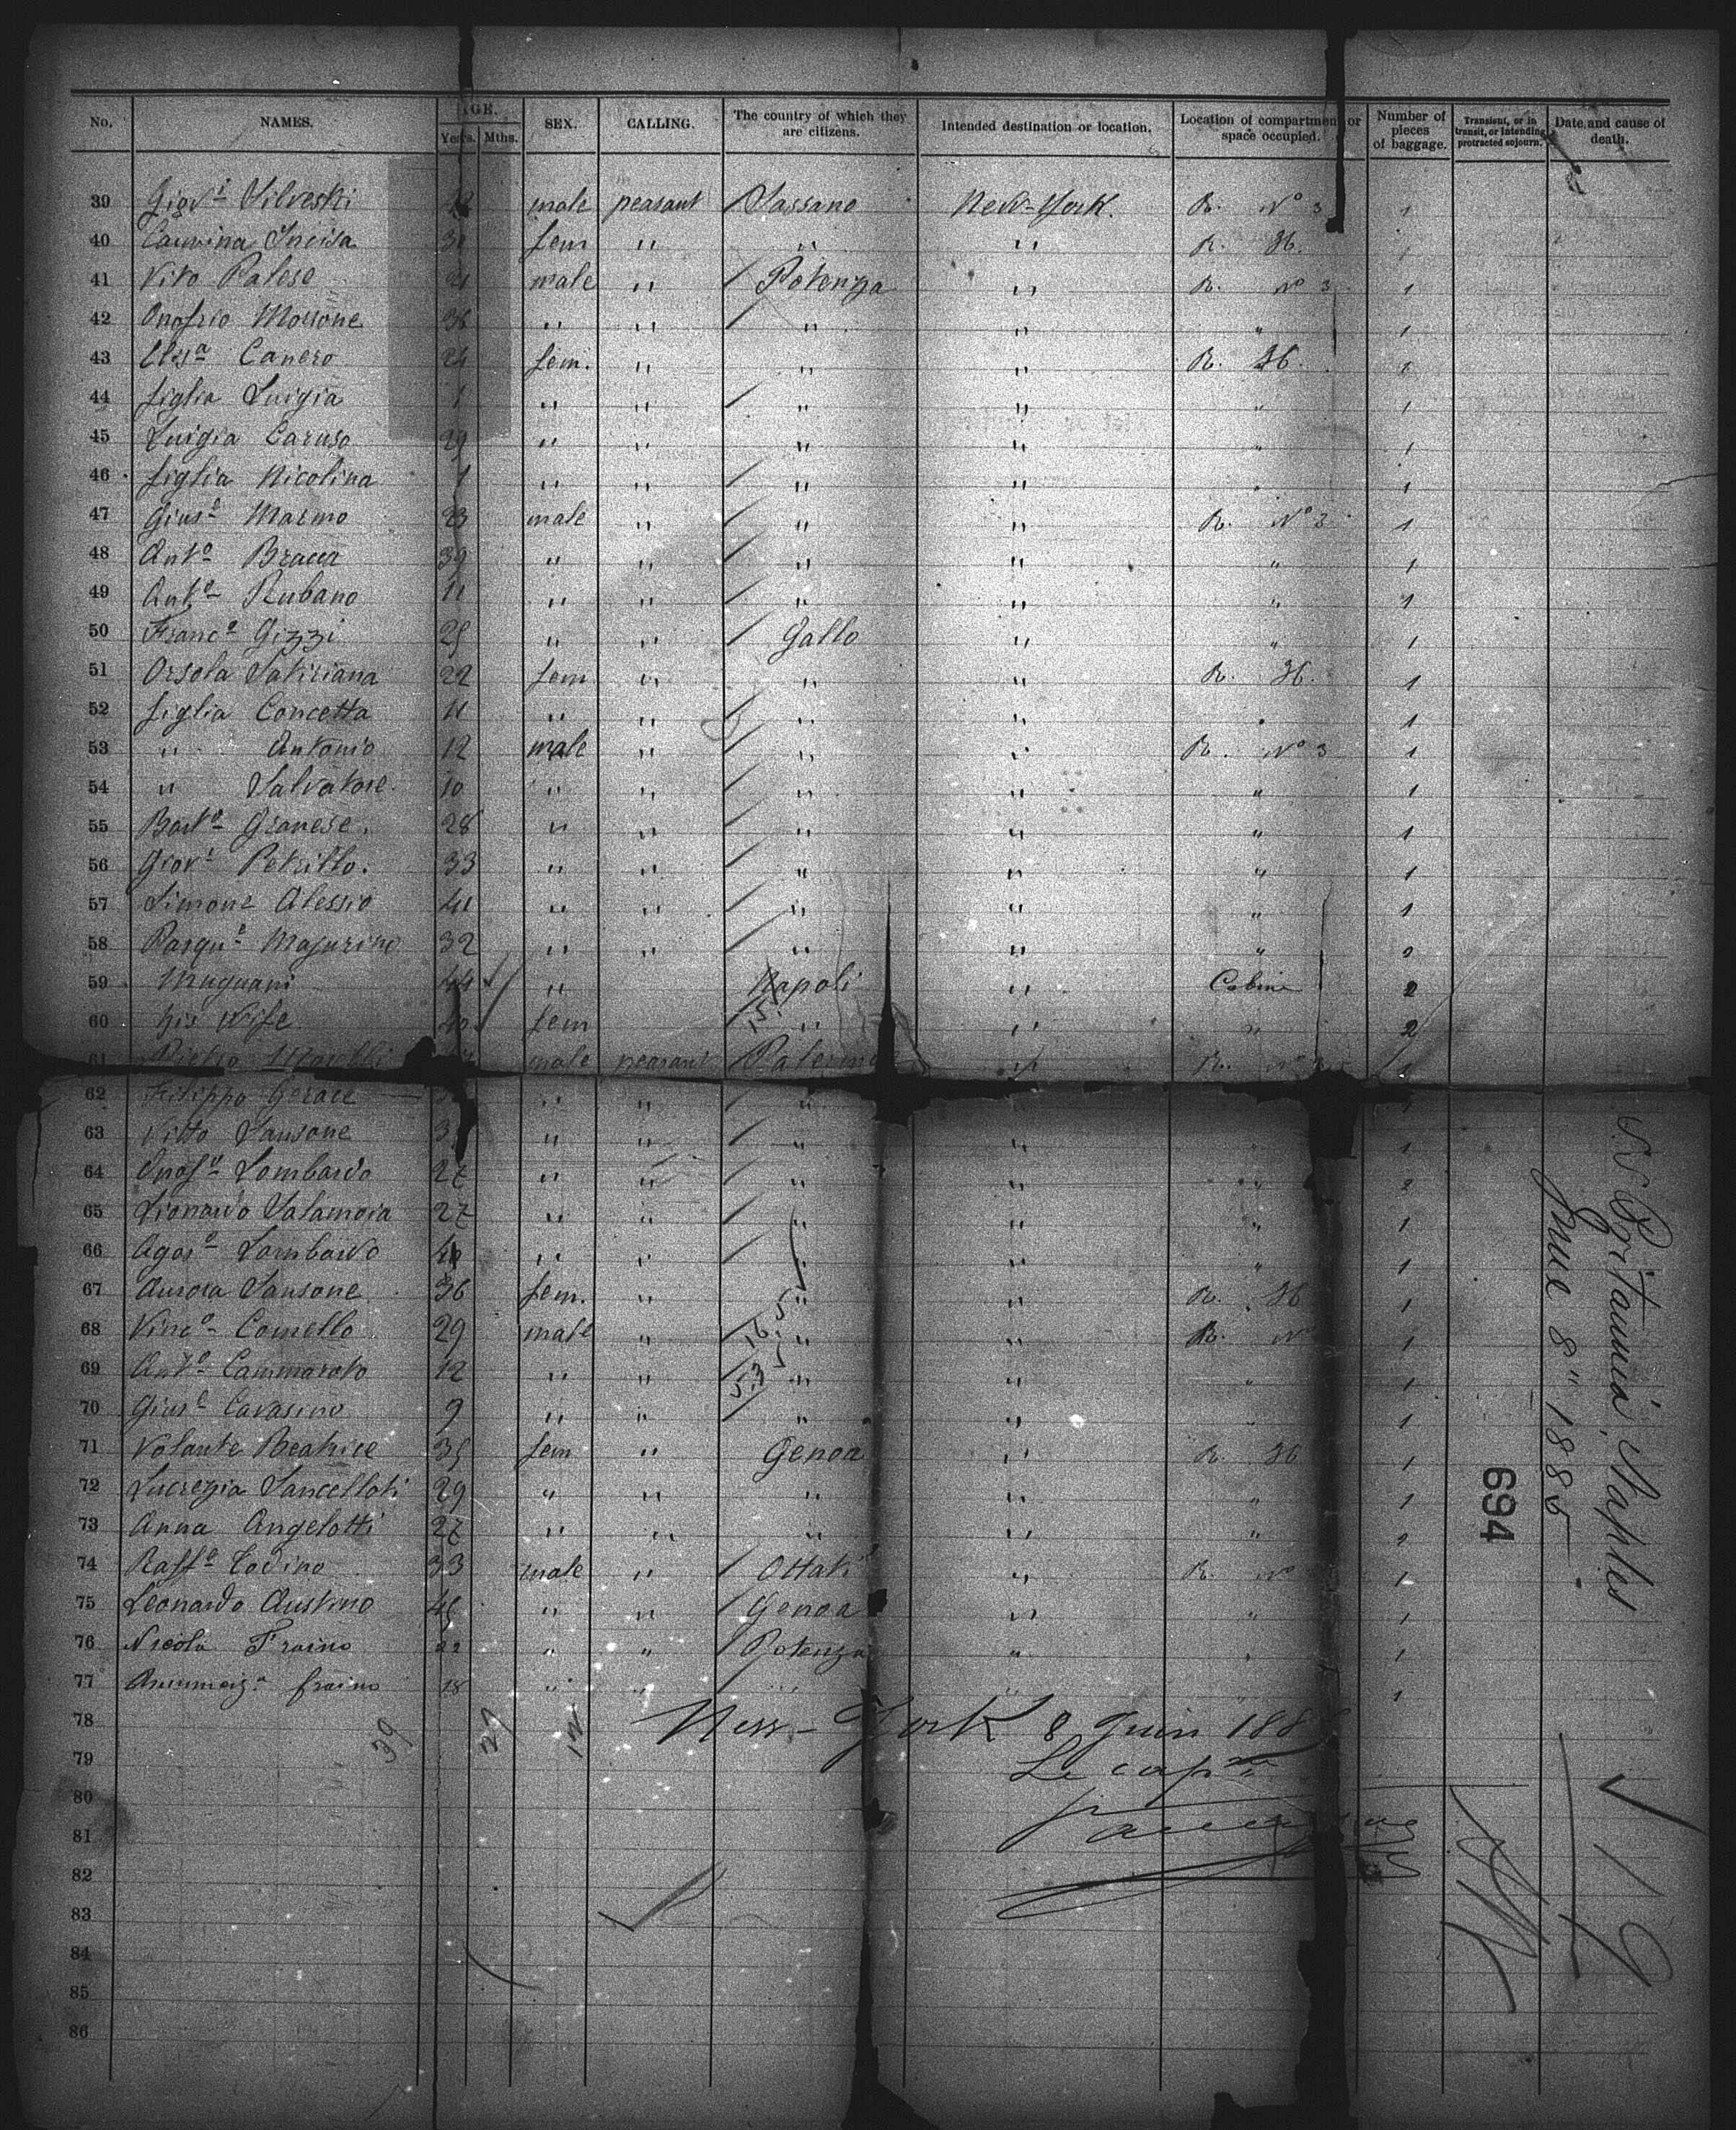 No. NAMES. AGE. Years. Mths. SEX. CALLING. The country of which they are citizens. Intended destination or location. Location of compartment or space occupied. Number of pieces of baggage. Transient, or in transit, or intending protracted sojourn. Date and cause of death.
39 Giov.i Silvestri male peasant Sassano New-York. R. No 3 1
40 fem " " " R. 36. 1
41 Vito Palese 21 male " Potenza " R. No 3 1
42 Onofrio Morrone 36 " " " " " 1
43 Canero 24 fem. " " " R. 36. 1
44 figlia Luigia 1 " " " " " 1
45 Luigia Caruso 29 " " " " " 1
46 figlia Nicolina 1 " " " " " 1
47 Gius.e Marmo 23 male " " " R. No 3 1
48 Ant.o Bracca 39 " " " " " 1
49 Ant.o Rubano 11 " " " " " 1
50 Franc.o Gizzi 25 " " Gallo " " 1
51 Orsola Satiriana 22 fem " " " R. 36. 1
52 figlia Concetta 11 " " " " " 1
53 " Antonio 12 male " " " R. No 3 1
54 " Salvatore 10 " " " " " 1
55 Bart.o Granese. 28 " " " " " 1
56 Giov.i Petrillo. 33 " " " " " 1
57 Simone Alessio 41 " " " " " 1
58 Pasqu.e Majurino 32 " " " " " 2
59 Mugnani 44 " Napoli " Cabine 2
60 his Wife 40 fem " " " 2
61 male peasant Palermo " R. No 1
62 Filippo Gerace " " "
63 Vitto Sansone " " " " " 1
64 Onof.o Lombardo 27 " " " " " 2
65 Lionardo Salamoia 27 " " " " " 1
66 Agos.o Lombardo " " " " " 1
67 Aurora Sansone 36 fem. " " " R. 36 1
68 Vinc.o Comello 29 male " " " R. No 1
69 Ant.o Cammarato 12 " " " " " 1
70 Gius.e Cavasino 9 " " " " " 1
71 Volante Beatrice 35 fem " Genoa " R. 36 1
72 Lucrezia Sancelloti 29 " " " " " 1
73 Anna Angelotti 27 " " " " " 2
74 Raff.o Todino 33 male " Ottati " R. No 1
75 Leonardo Austino " " Genoa " " 1
76 Nicola Fraino 22 " " Potenza " " 1
77 fraino 18 " " " " " 1
78 New-York 8 Juin 188
79 Le cap
80
81
82
83
84
85
86
39
Britannia, Naples
June 8" 1885
694
19